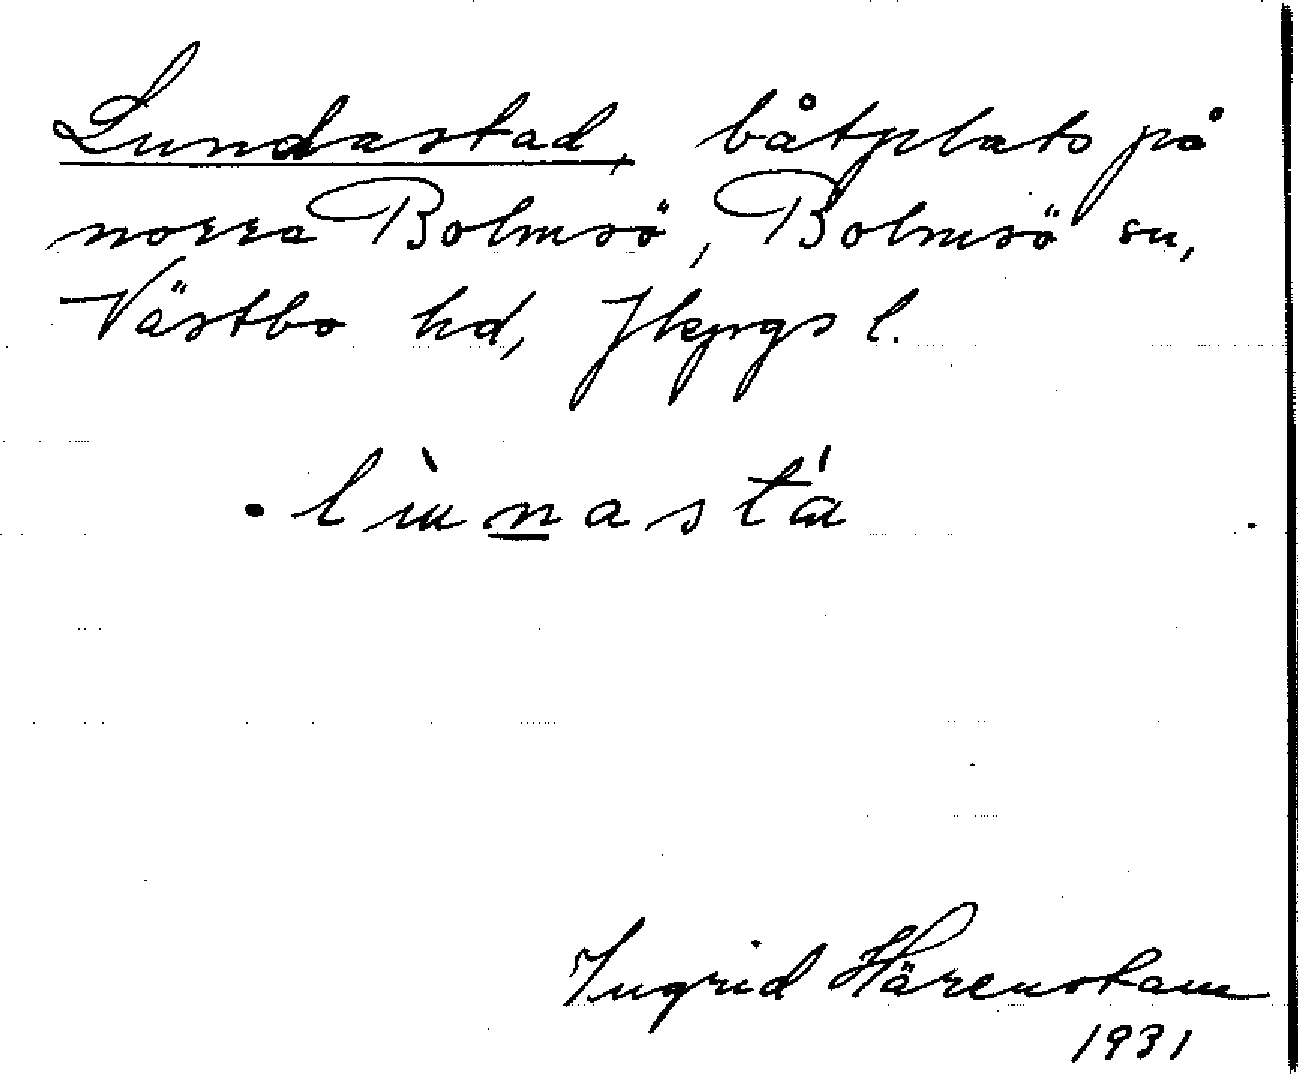 Lundastad, båtplats på
norra Bolmsö, Bolmsö sn,
Västbo hd, Jkpgs l.
Ingrid Härenstam
1931